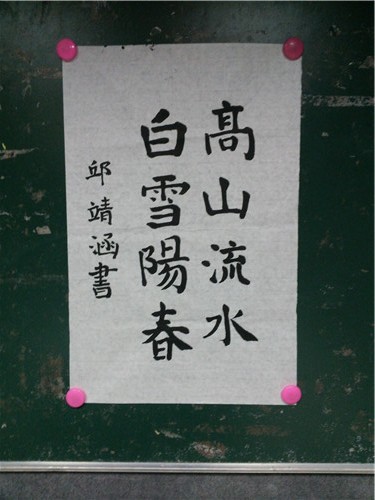 高山流水
白雪陽春
邱靖涵書